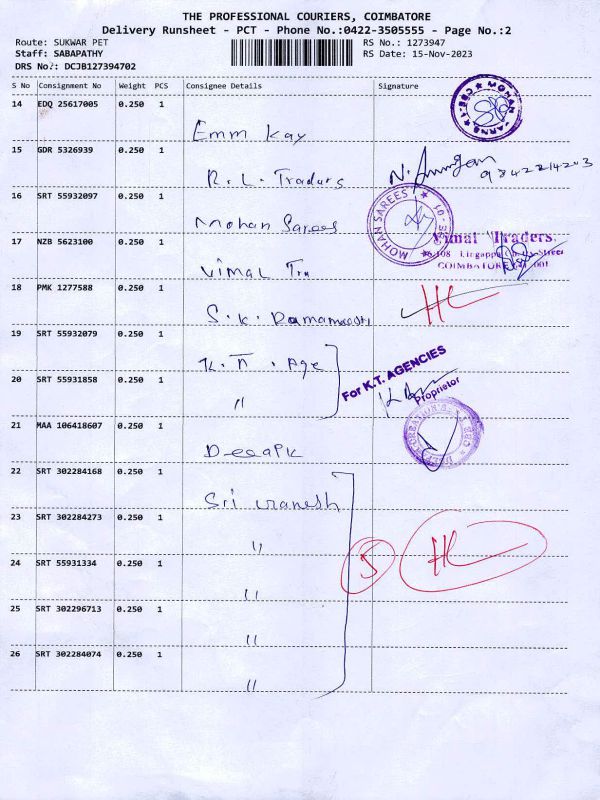 THE PROFESSIONAL COURIERS, COIMBATORE
Delivery Runsheet - PCT - Phone No.:0422-3505555 - Page No.:2
Route: SUKWAR PET RS No.: 1273947
Staff: SABAPATHY RS Date: 15-Nov-2023
DRS No.: DCJB127394702
S No Consignment No Weight PCS Consignee Details Signature
14 EDQ 25617005 0.250 1
MOHAN
Emm Kay
15 GDR 5326939 0.250 1
R. L. Traders
16 SRT 55932097 0.250 1
MOHAN SAREES
Mohan Sarees
17 NZB 5623100 0.250 1
Vimal Traders,
COIMBATORE 001
Vimal Tra
18 PMK 1277588 0.250 1
S. K.
19 SRT 55932079 0.250 1
K. T. Age
For K.T. AGENCIES
20 SRT 55931858 0.250 1
Proprietor
"
21 MAA 106418607 0.250 1
Deeapk
22 SRT 302284168 0.250 1
Sri Ganesh
23 SRT 302284273 0.250 1
"
5
24 SRT 55931334 0.250 1
"
25 SRT 302296713 0.250 1
"
26 SRT 302284074 0.250 1
"